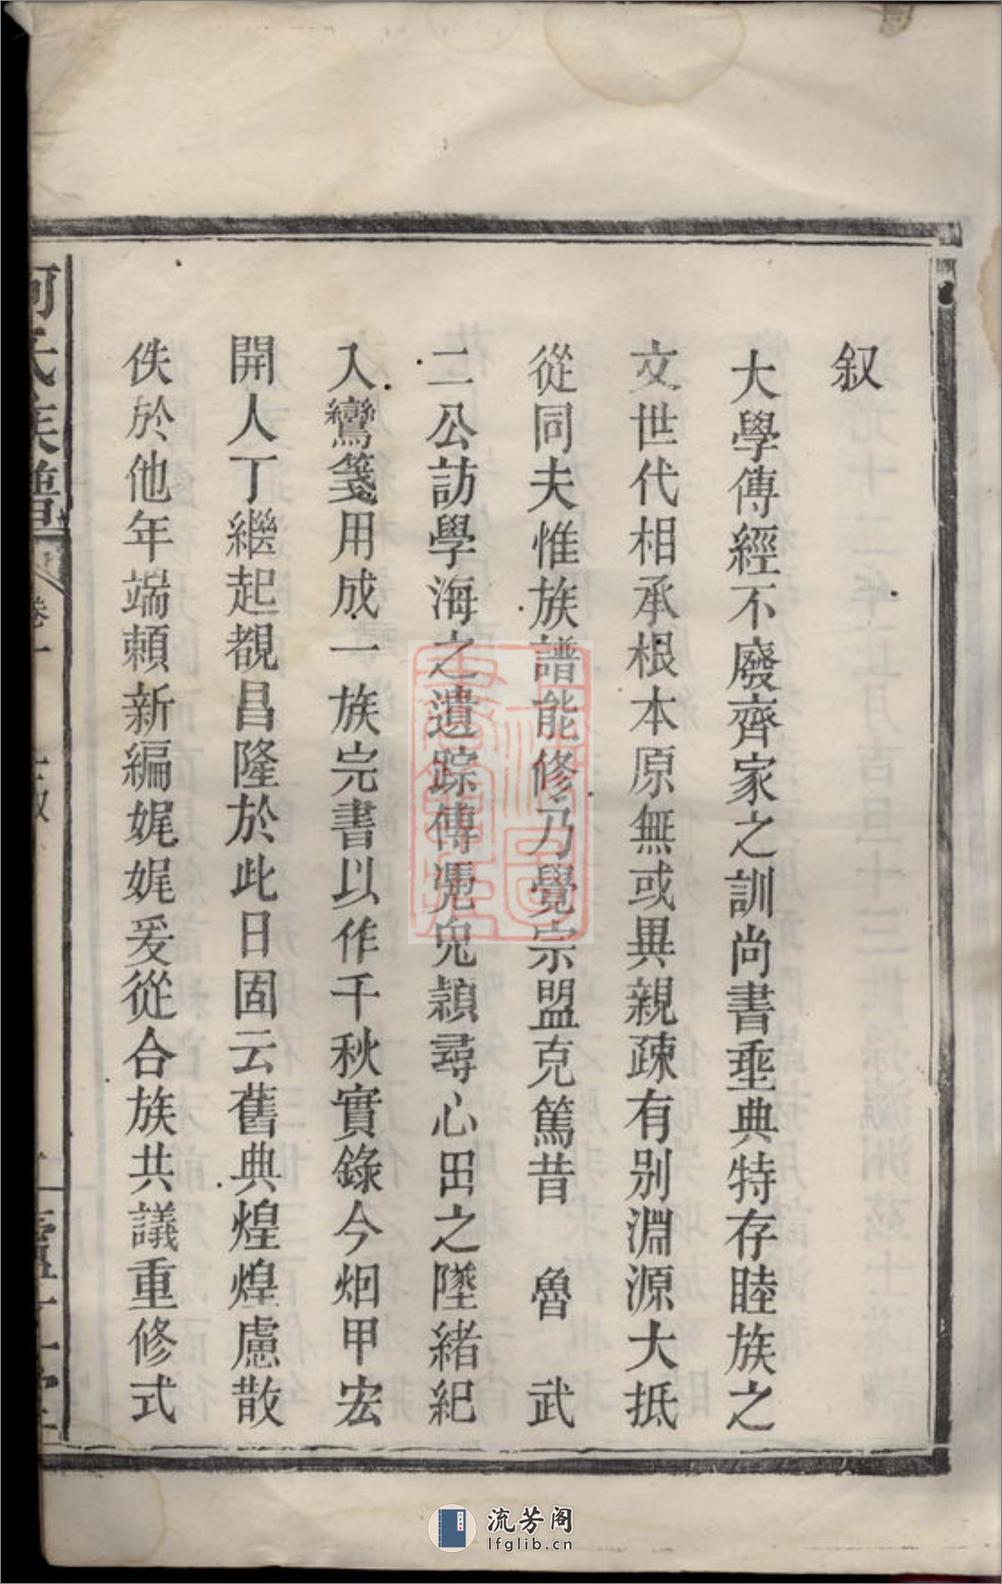 叙
大學傳經不廢齊家之訓尚書垂典特存睦族之
文世代相承根本原無或異親疎有别淵源大抵
從同夫惟族譜能修乃覺宗盟克篤昔 魯 武
二公訪學海之遺踪傳凴兔穎尋心田之墜緒紀
入鸞箋用成一族完書以作千秋實錄今烟甲宏
開人丁繼起覩昌隆於此日固云舊典煌煌慮散
佚於他年端賴新編娓娓爰從合族共議重修式
氏族譜
卷一
流芳阁
lfglib.cn